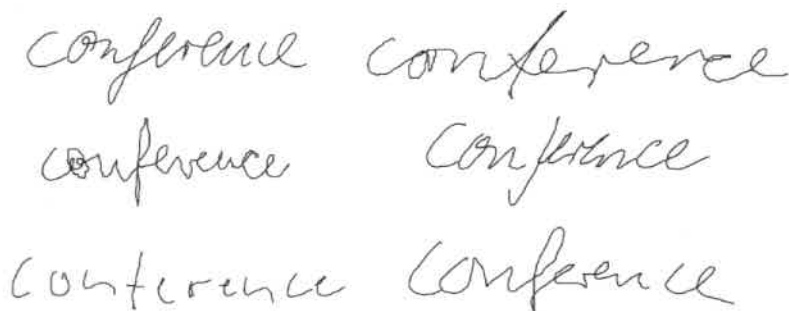 conference conference
conference conference
conference conference